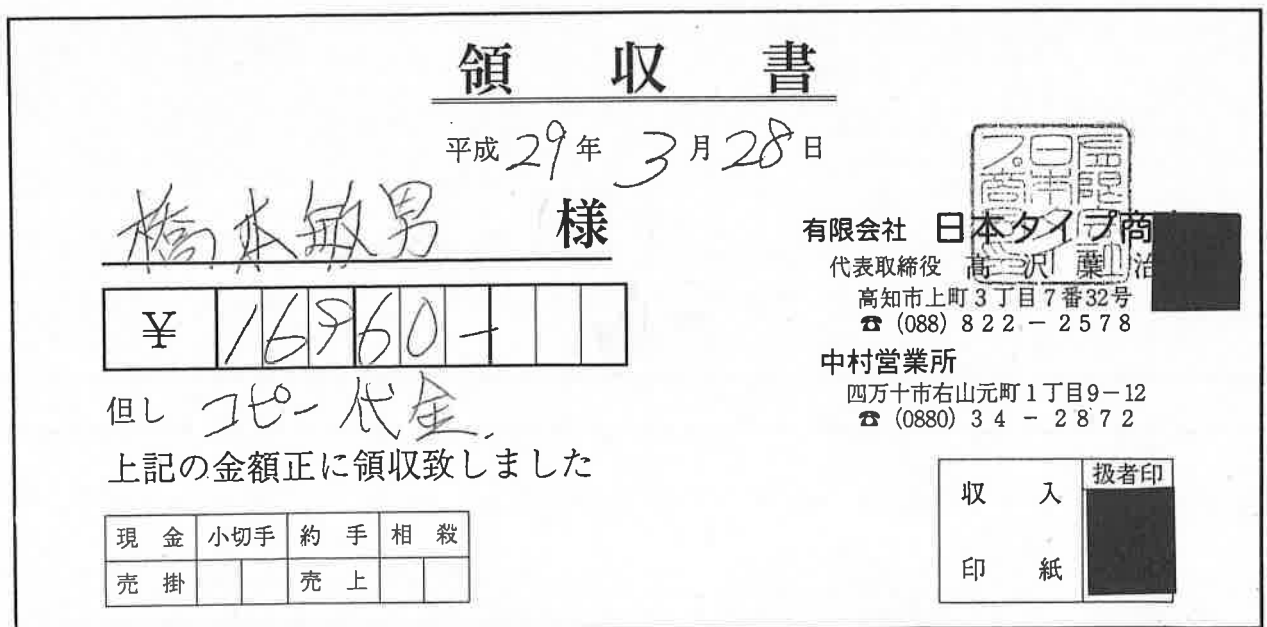 領収書
平成29年3月28日
橋本敏男 様
¥ 16960-
但し コピー代金.
上記の金額正に領収致しました
現金 小切手 約手 相殺
売掛 売上
有限会社 日本タイプ商
代表取締役 高沢 葉治
高知市上町3丁目7番32号
☎ (088) 822-2578
中村営業所
四万十市右山元町1丁目9-12
☎ (0880) 34-2872
収入 扱者印
印紙